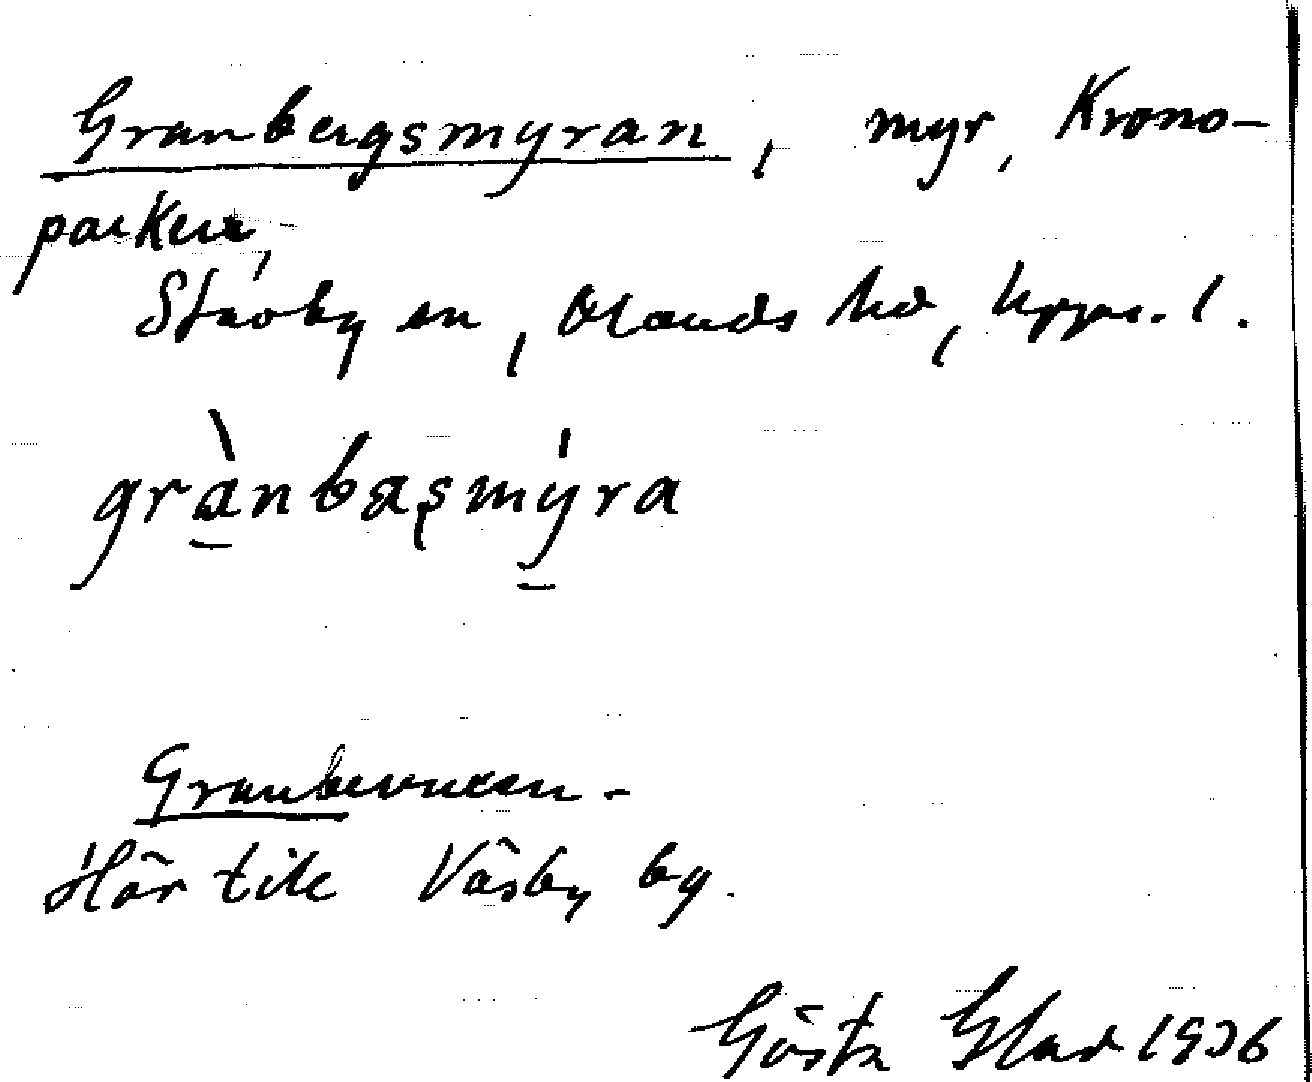 Granbergsmyran, myr, Krono-
parken,
Stavby sn, Olands hd, Upps. l.
grànbaşmýra
Granber
Hör till Väsby by.
Gösta Glad 1936